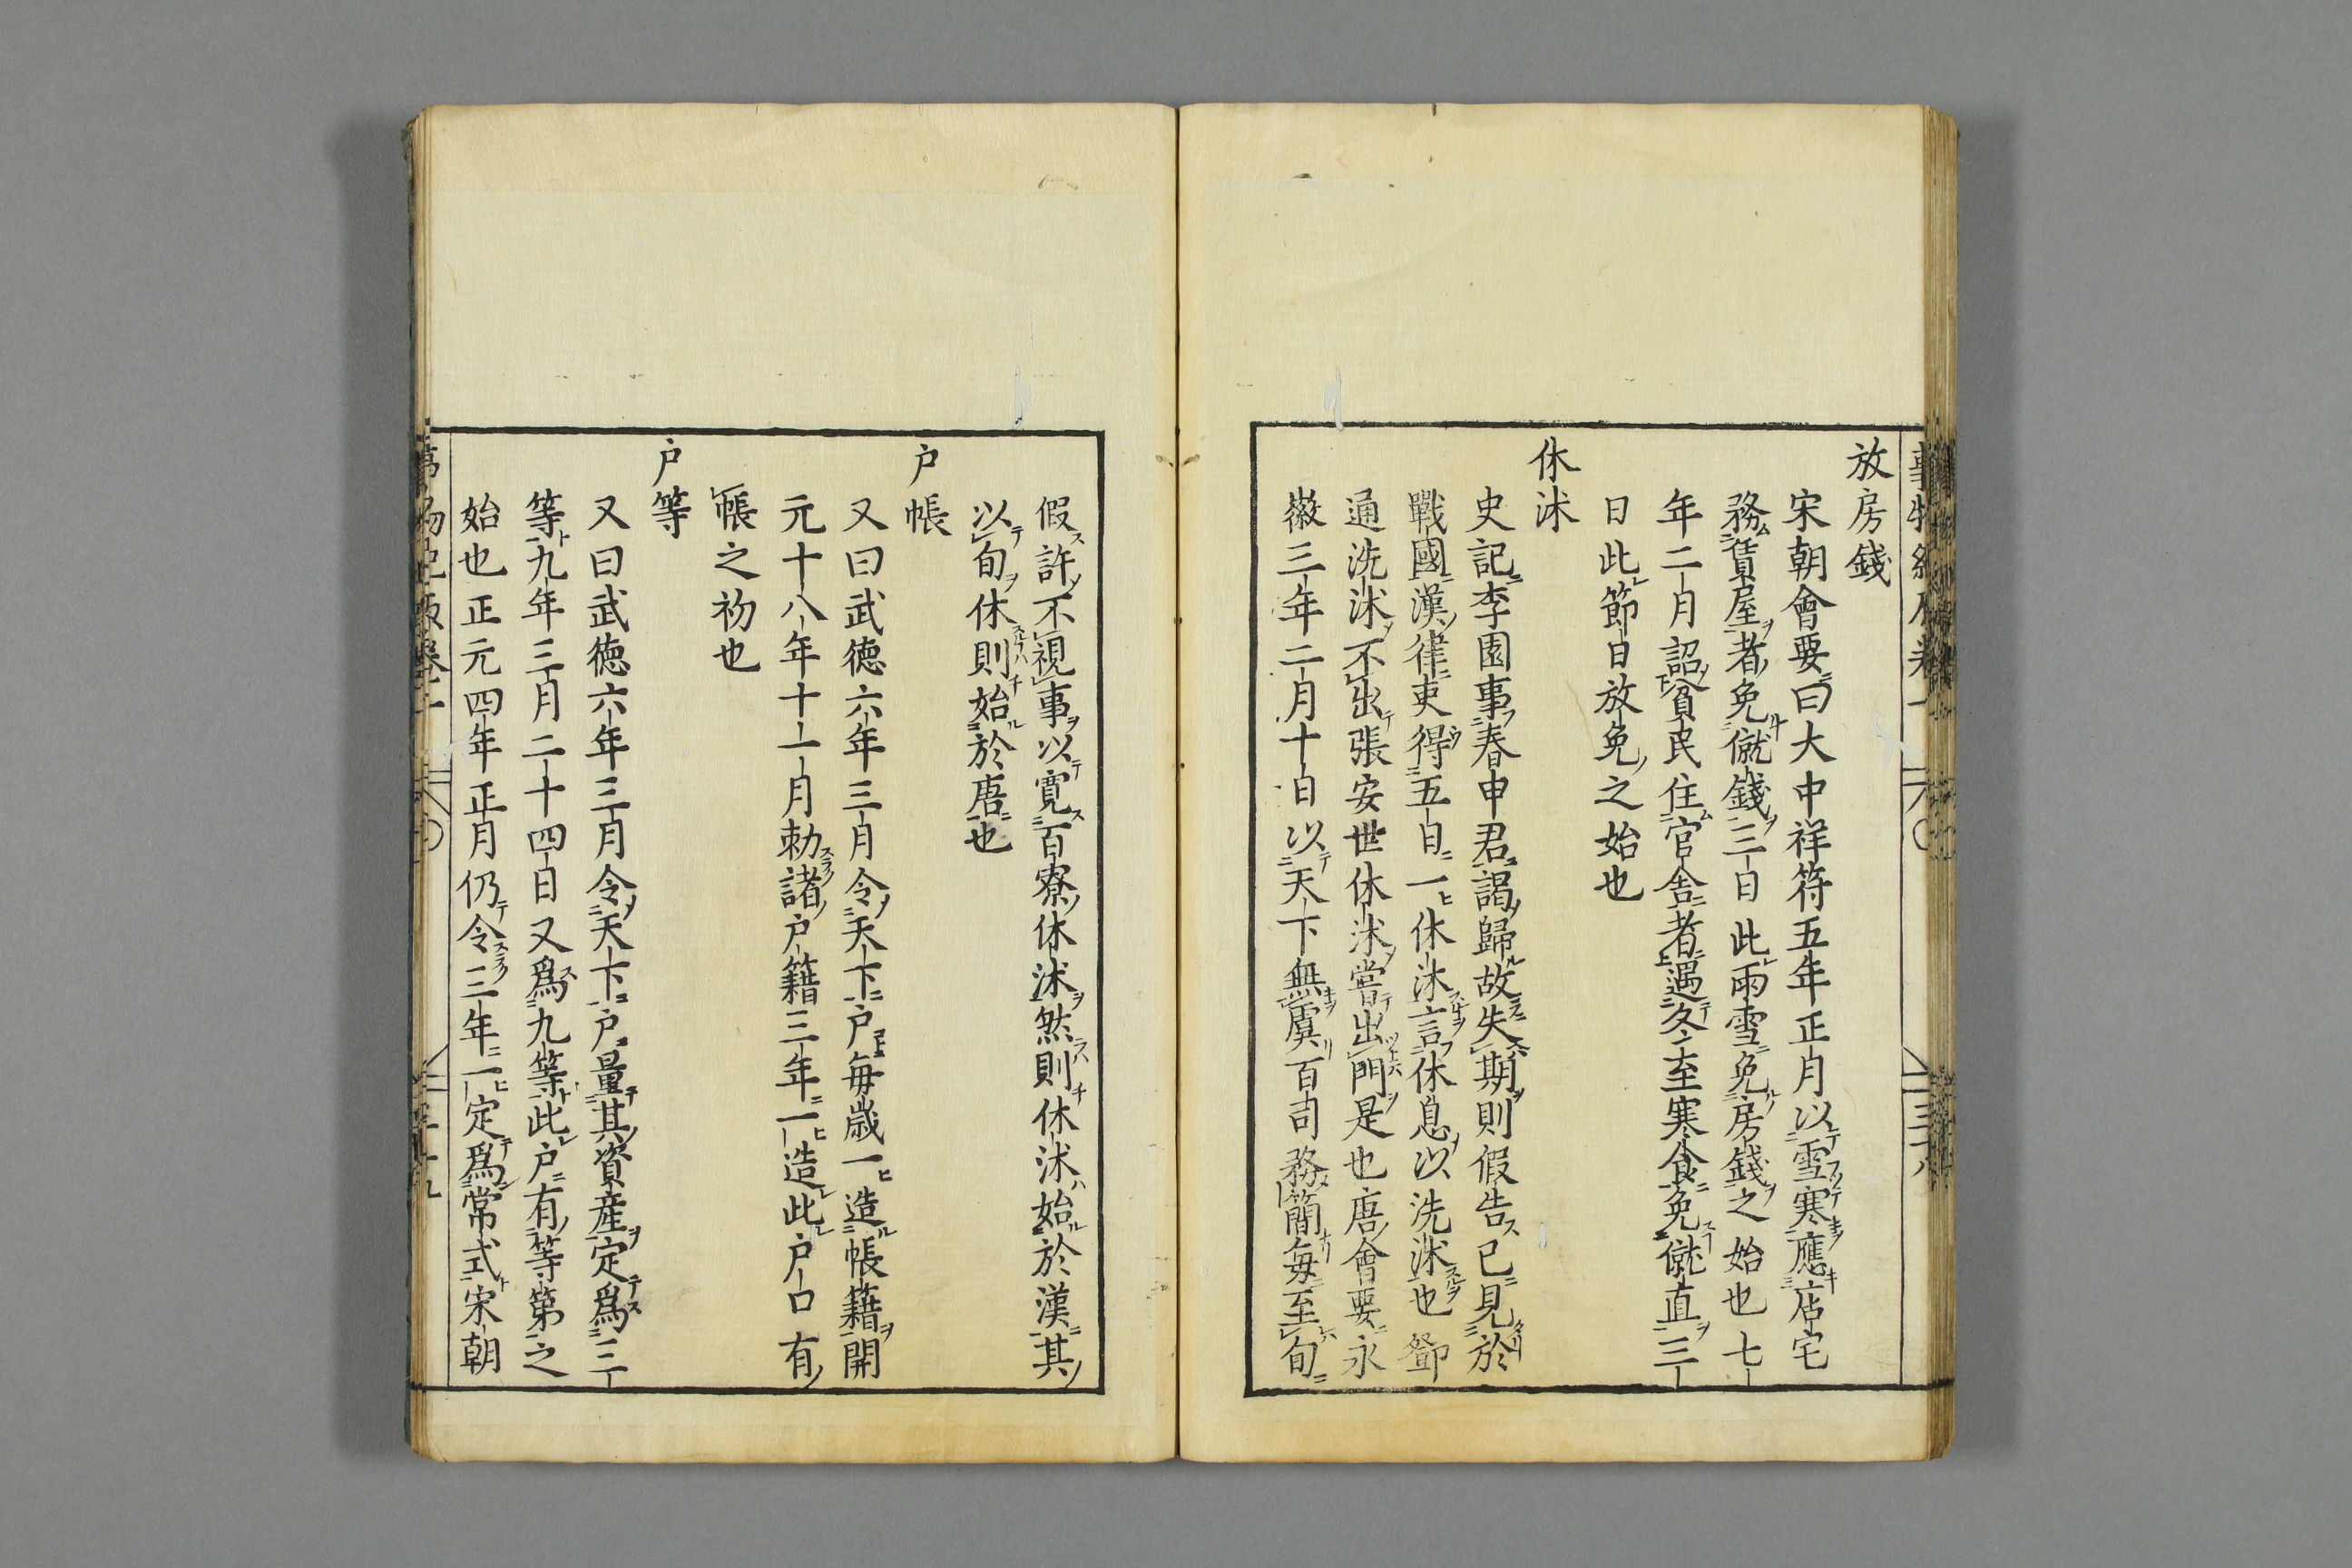 放房錢
宋朝會要曰大中祥符五年正月以雪寒應店宅
務賃屋者免僦錢三日此雨雪免房錢之始也七
年二月詔貧民住官舍者遇冬至寒食免僦直三
日此節日放免之始也
休沐
史記李園事春申君謁歸故失期則假告已見於
戰國漢律吏得五日一休沐言休息以洗沐也鄧
通洗沐不出張安世休沐嘗出門是也唐會要永
徽三年二月十日以天下無虞百司務簡每至旬
假許不視事以寬百寮休沐然則休沐始於漢其
以旬休則始於唐也
户帳
又曰武德六年三月令天下户每歲一造帳籍開
元十八年十一月勅諸户籍三年一造此户口有
帳之初也
户等
又曰武德六年三月令天下户量其資産定爲三
等九年三月二十四日又爲九等此户有等第之
始也正元四年正月仍令三年一定爲常式宋朝